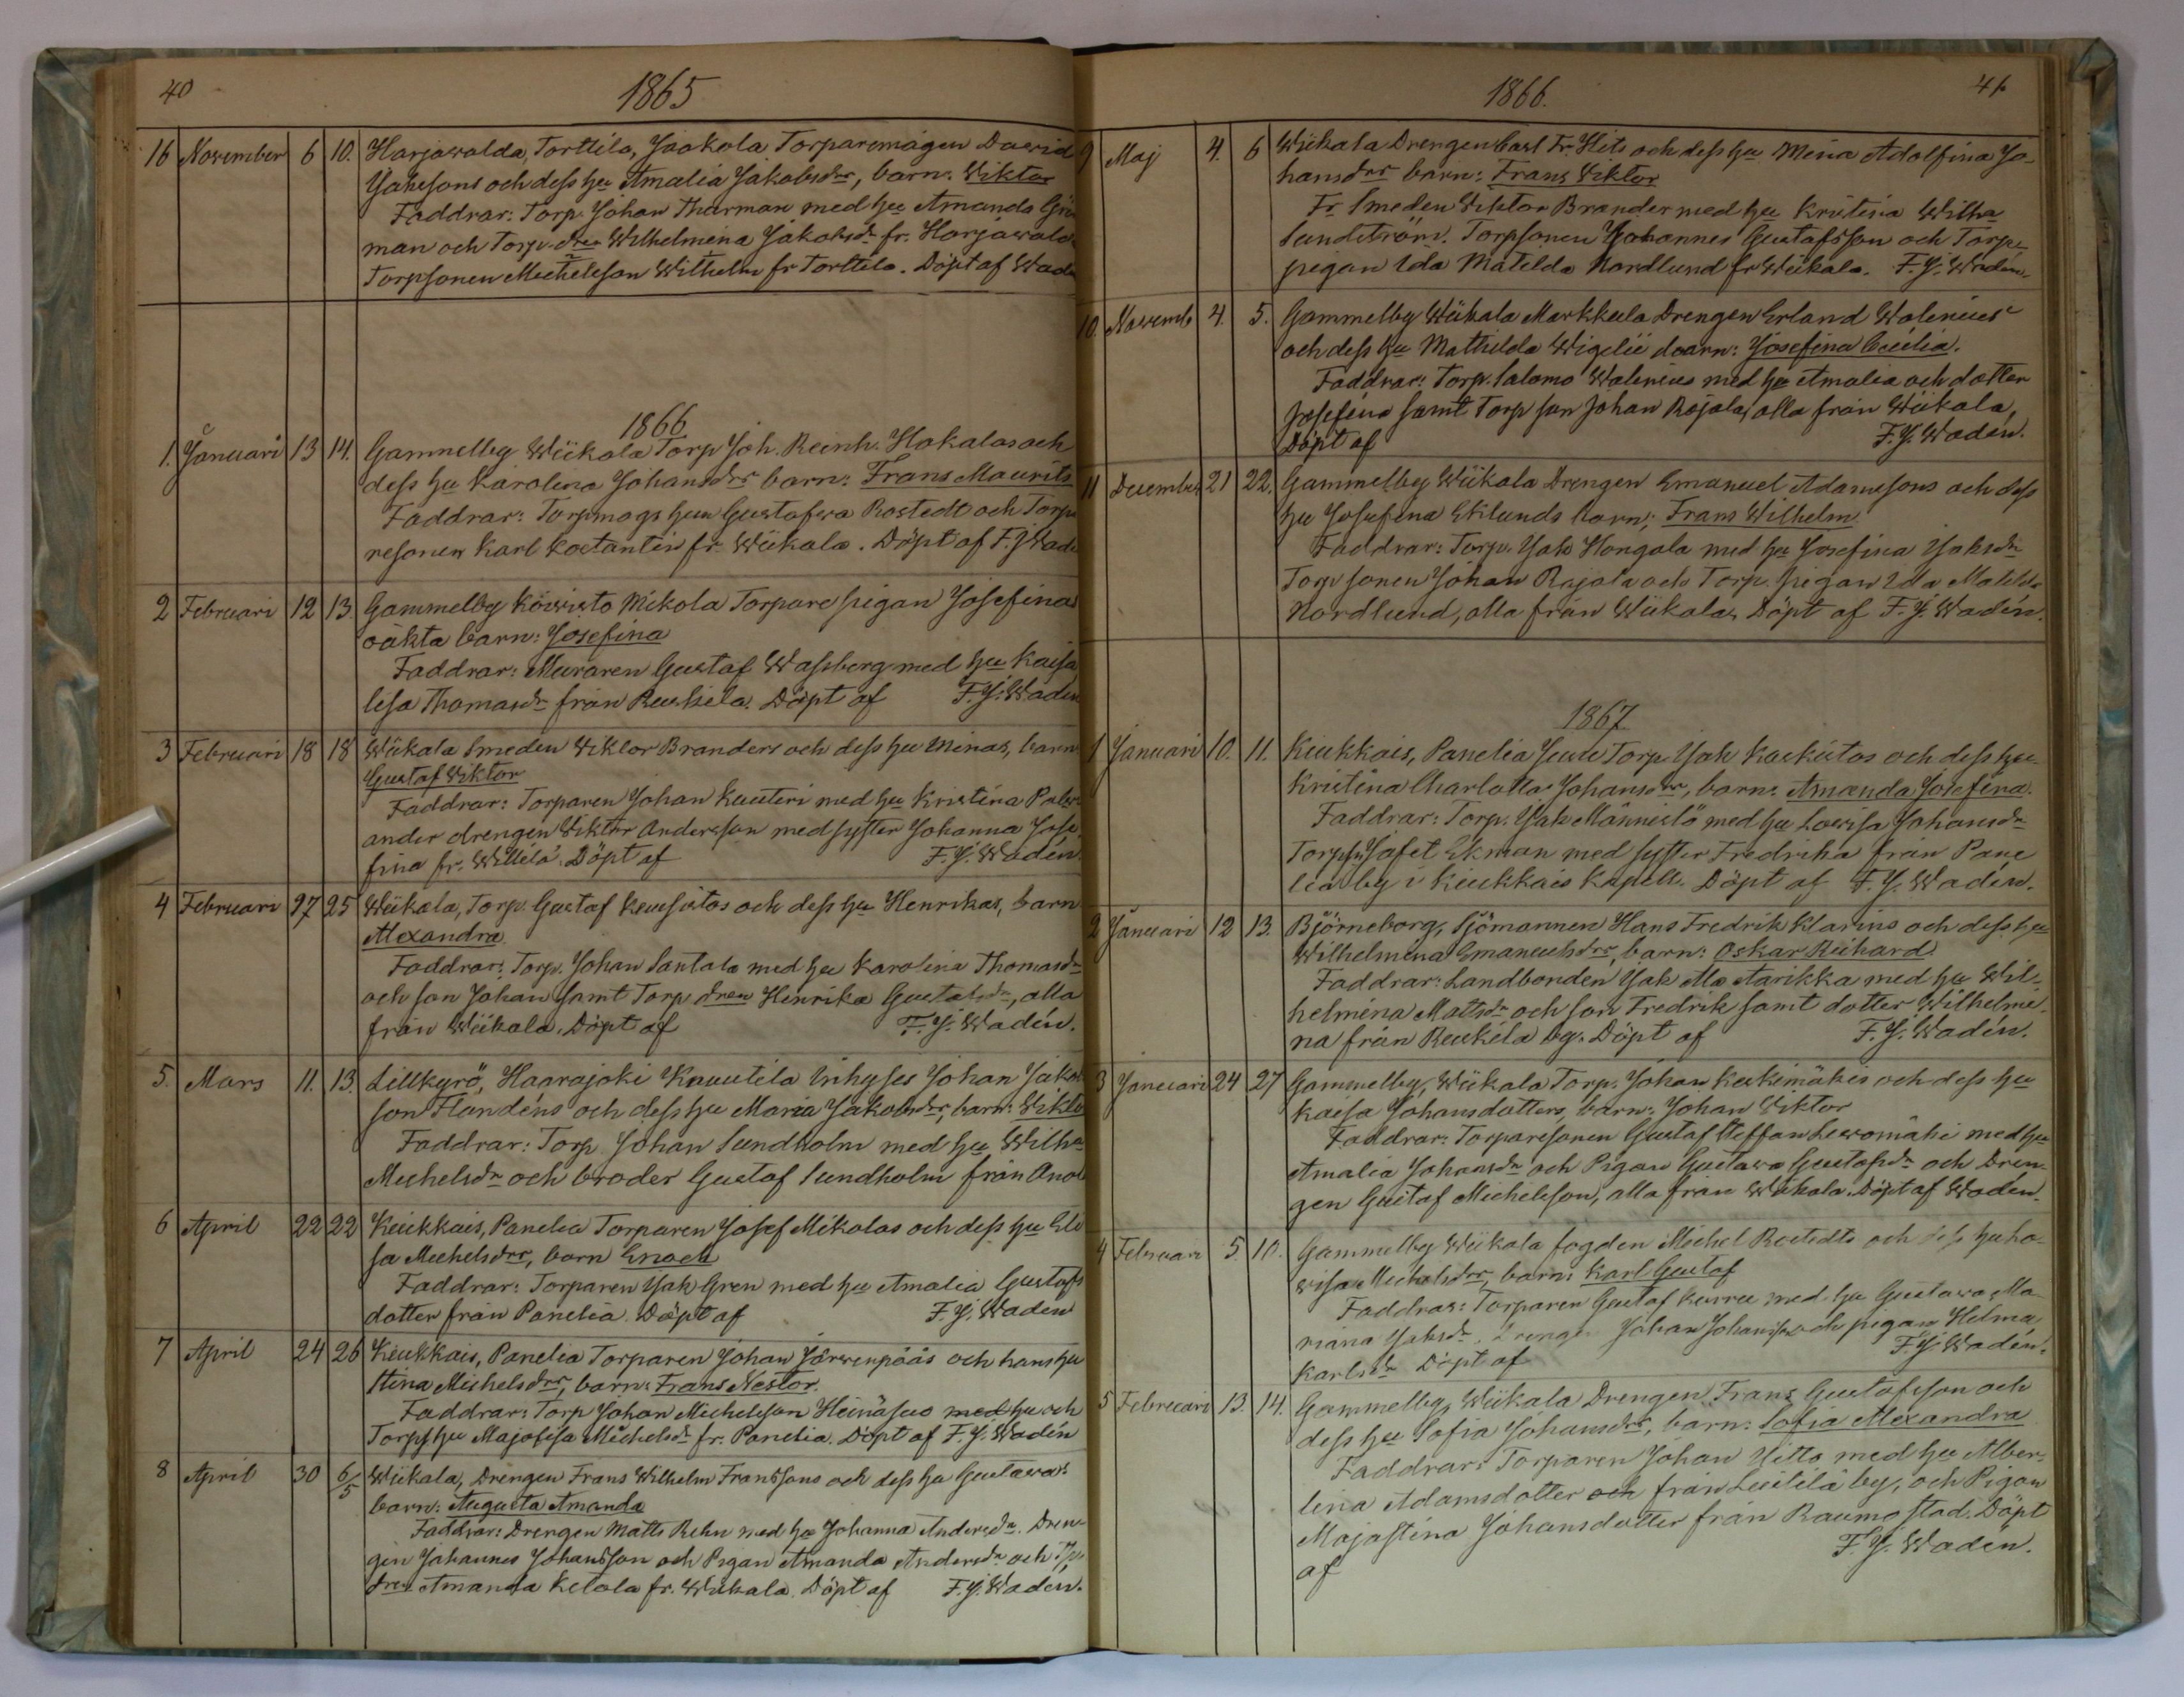 40
1865
16 November 6 10. Harjawalda, Torttila, Jaakola Torparemågen Dawid
Jakssons och dess hu Amalia Jakobsdrs, barn: Wiktor
Faddrar: Torp. Johan Thurman med hu Amanda
man och Torp. dren Wilhelmina Jakobsdr fr. Harjawalda
Torpsonen Michelsson Wilhelm fr Torttila. Döpt af Wadén
1866
1. Januari 13 14. Gammelby Wiikala Torp Joh. Reinh. Hakalas och
dess hu Karolina Johansdrs barn: Frans Maurits
Faddrar: Torpmågs hun Gustafwa Rostedt och Torpa
resonen Karl Kostantin fr. Wiikala. Döpt af F. J. Wadén
2 Februari 12 13. Gammelby Köwisto Mikola Torpare pigan Josefinas
oäkta barn: Josefina
Faddrar: Muraren Gustaf Wassberg med hu Kaisa
lisa Thomasdr från Reukila. Döpt af F. J. Wadén
3 Februari 18 18 Wiikala Smeden Viktor Branders och dess hu Minas, barn
Gustaf Viktor
Faddrar: Torparen Johan Kuuteri med hu Kristina
ander drengen Viktor Andersson med syster Johanna Jose
fina fr. Willilä. Döpt af F. J. Wadén
4 Februari 27 25 Wiikala, Torp. Gustaf och dess hu Henrikas, barn
Alexandra
Faddrar: Torp. Johan Santala med hu Karolina Thomasdr
och son Johan samt Torp dren Henrika Gustafsdr, alla
från Wiikala, Döpt af F. J. Wadén.
5. Mars 11. 13. Lillkyrö, Haarajoki Knuutila Inhyses Johan Jakob
son Flandéns och dess hu Maria Jakobsdrs, barn: Wikto
Faddrar: Torp Johan Sundholm med hu Wilha
Michelsdr och broder Gustaf Sundholm från Anola
6 April 22 22 Kiukkais, Panelia Torparen Josef Mikolas och dess hu Eli
sa Michelsdrs, barn Enoch
Faddrar: Torparen Jak Gren med hu Amalia Gustafs
dotter från Panelia. Döpt af F. J. Wadén
7 April 24 26 Kiukkais, Panelia Torparen Johan Järwenpääs och hans hu
Stina Michelsdrs, barn: Frans Nestor.
Faddrar: Torp Johan Michelsson Heinäsuo med hu och
Torps hu Majalisa Michelsdr fr. Panelia. Döpt af F. J. Wadén
8 April 30 6/5 Wiikala, Drengen Frans Wilhelm Franssons och dess hu Gustawas
barn: Augusta Amanda
Faddrar: Drengen Matts Rehn med hu Johanna Andersdr. Dren-
gen Johannes Johansson och Pigan Amanda Andersdr och Tp.
dren Amanda Ketola fr. Wiikala. Döpt af F. J. Wadén.
41
1866.
9 Maj 4. 6 Wiikala Drengen Carl Fr. Hits och dess hu Mina Adolfina Jo-
hansdrs barn: Frans Viktor
Fr. Smeden Viktor Brander med hu Kristina Wilha
Sundström. Torpsonen Johannes Gustafsson och Torp-
pigan Ida Matilda Nordlund fr Wiikala. F. J. Wadén.
10. Novemb 4. 5. Gammelby Wiikala Markkula Drengen Erland Walenius
och dess hu Mathilda Wigelii dr barn: Josefina Cecilia.
Faddrar: Torp. Salomo Walenius med hu Amalia och dotter
Josefina samt Torp son Johan Rajala, alla från Wiikala,
Döpt af F. J. Wadén.
11 December 21 22. Gammelby Wiikala Drengen Emanuel Adamssons och dess
hu Josefina Eklunds barn; Frans Wilhelm
Faddrar: Torp. Jak Hongala med hu Josefina Jaksdr
Torp sonen Johan Rajala och Torp. pigan Ida Matilda
Nordlund, alla från Wiikala, Döpt af F. J. Wadén.
1867
1 Januari 10. 11. Kiukkais, Panelia Torp Jak och dess hu
Kristina Charlotta Johansdrs, barn: Amanda Josefina.
Faddrar: Torp. Jak Männistö med hu Lowisa Johansdr
Torpsn Jafet Ekman med syster Fredrika från Pane
lia by i Kiukkais Kapell. Döpt af F. J. Wadén.
2 Januari 12 13. Björneborg, Sjömannen Hans Fredrik Klarins och dess hu
Wilhelmina Emanuelsdrs, barn: Oskar Rickard
Faddrar: Landbonden Jak Ala Aarikka med hu Wil-
helmina Mattsdr och son Fredrik samt dotter Wilhelmi-
na från Reukila by. Döpt af F. J. Wadén.
3 Januari 24 27 Gammelby, Wiikala Torp. Johan Keskimäkis och dess hu
Kaisa Johansdotters, barn: Johan Viktor
Faddrar: Torparesonen Gustaf Steffan Lewomäki med hu
Amalia Johansdr och Pigan Gustawa Gustafsdr och Dren-
gen Gustaf Michelsson, alla från Wiikala. Döpt af Wadén.
4 Februari 5. 10. Gammelby Wiikala fogden Michel Rostedts och dess hu Lo-
wisa Michelsdrs, barn: Karl Gustaf
Faddrar: Torparen Gustaf Kurru med hu Gustawa Ma-
riana Jaksdr. Drengen Johan Johansson och pigan Helma
Karlsdr Döpt af F. J. Wadén.
5 Februari 13. 14. Gammelby, Wiikala Drengen Frans Gustafsson och
dess hu Sofia Johansdrs, barn: Sofia Alexandra
Faddrar: Torparen Johan Yitto med hu Alber-
tina Adamsdotter och från Lëitilä by, och Pigan
Majastina Johansdotter från Raumo stad. Döpt
af F. J. Wadén.